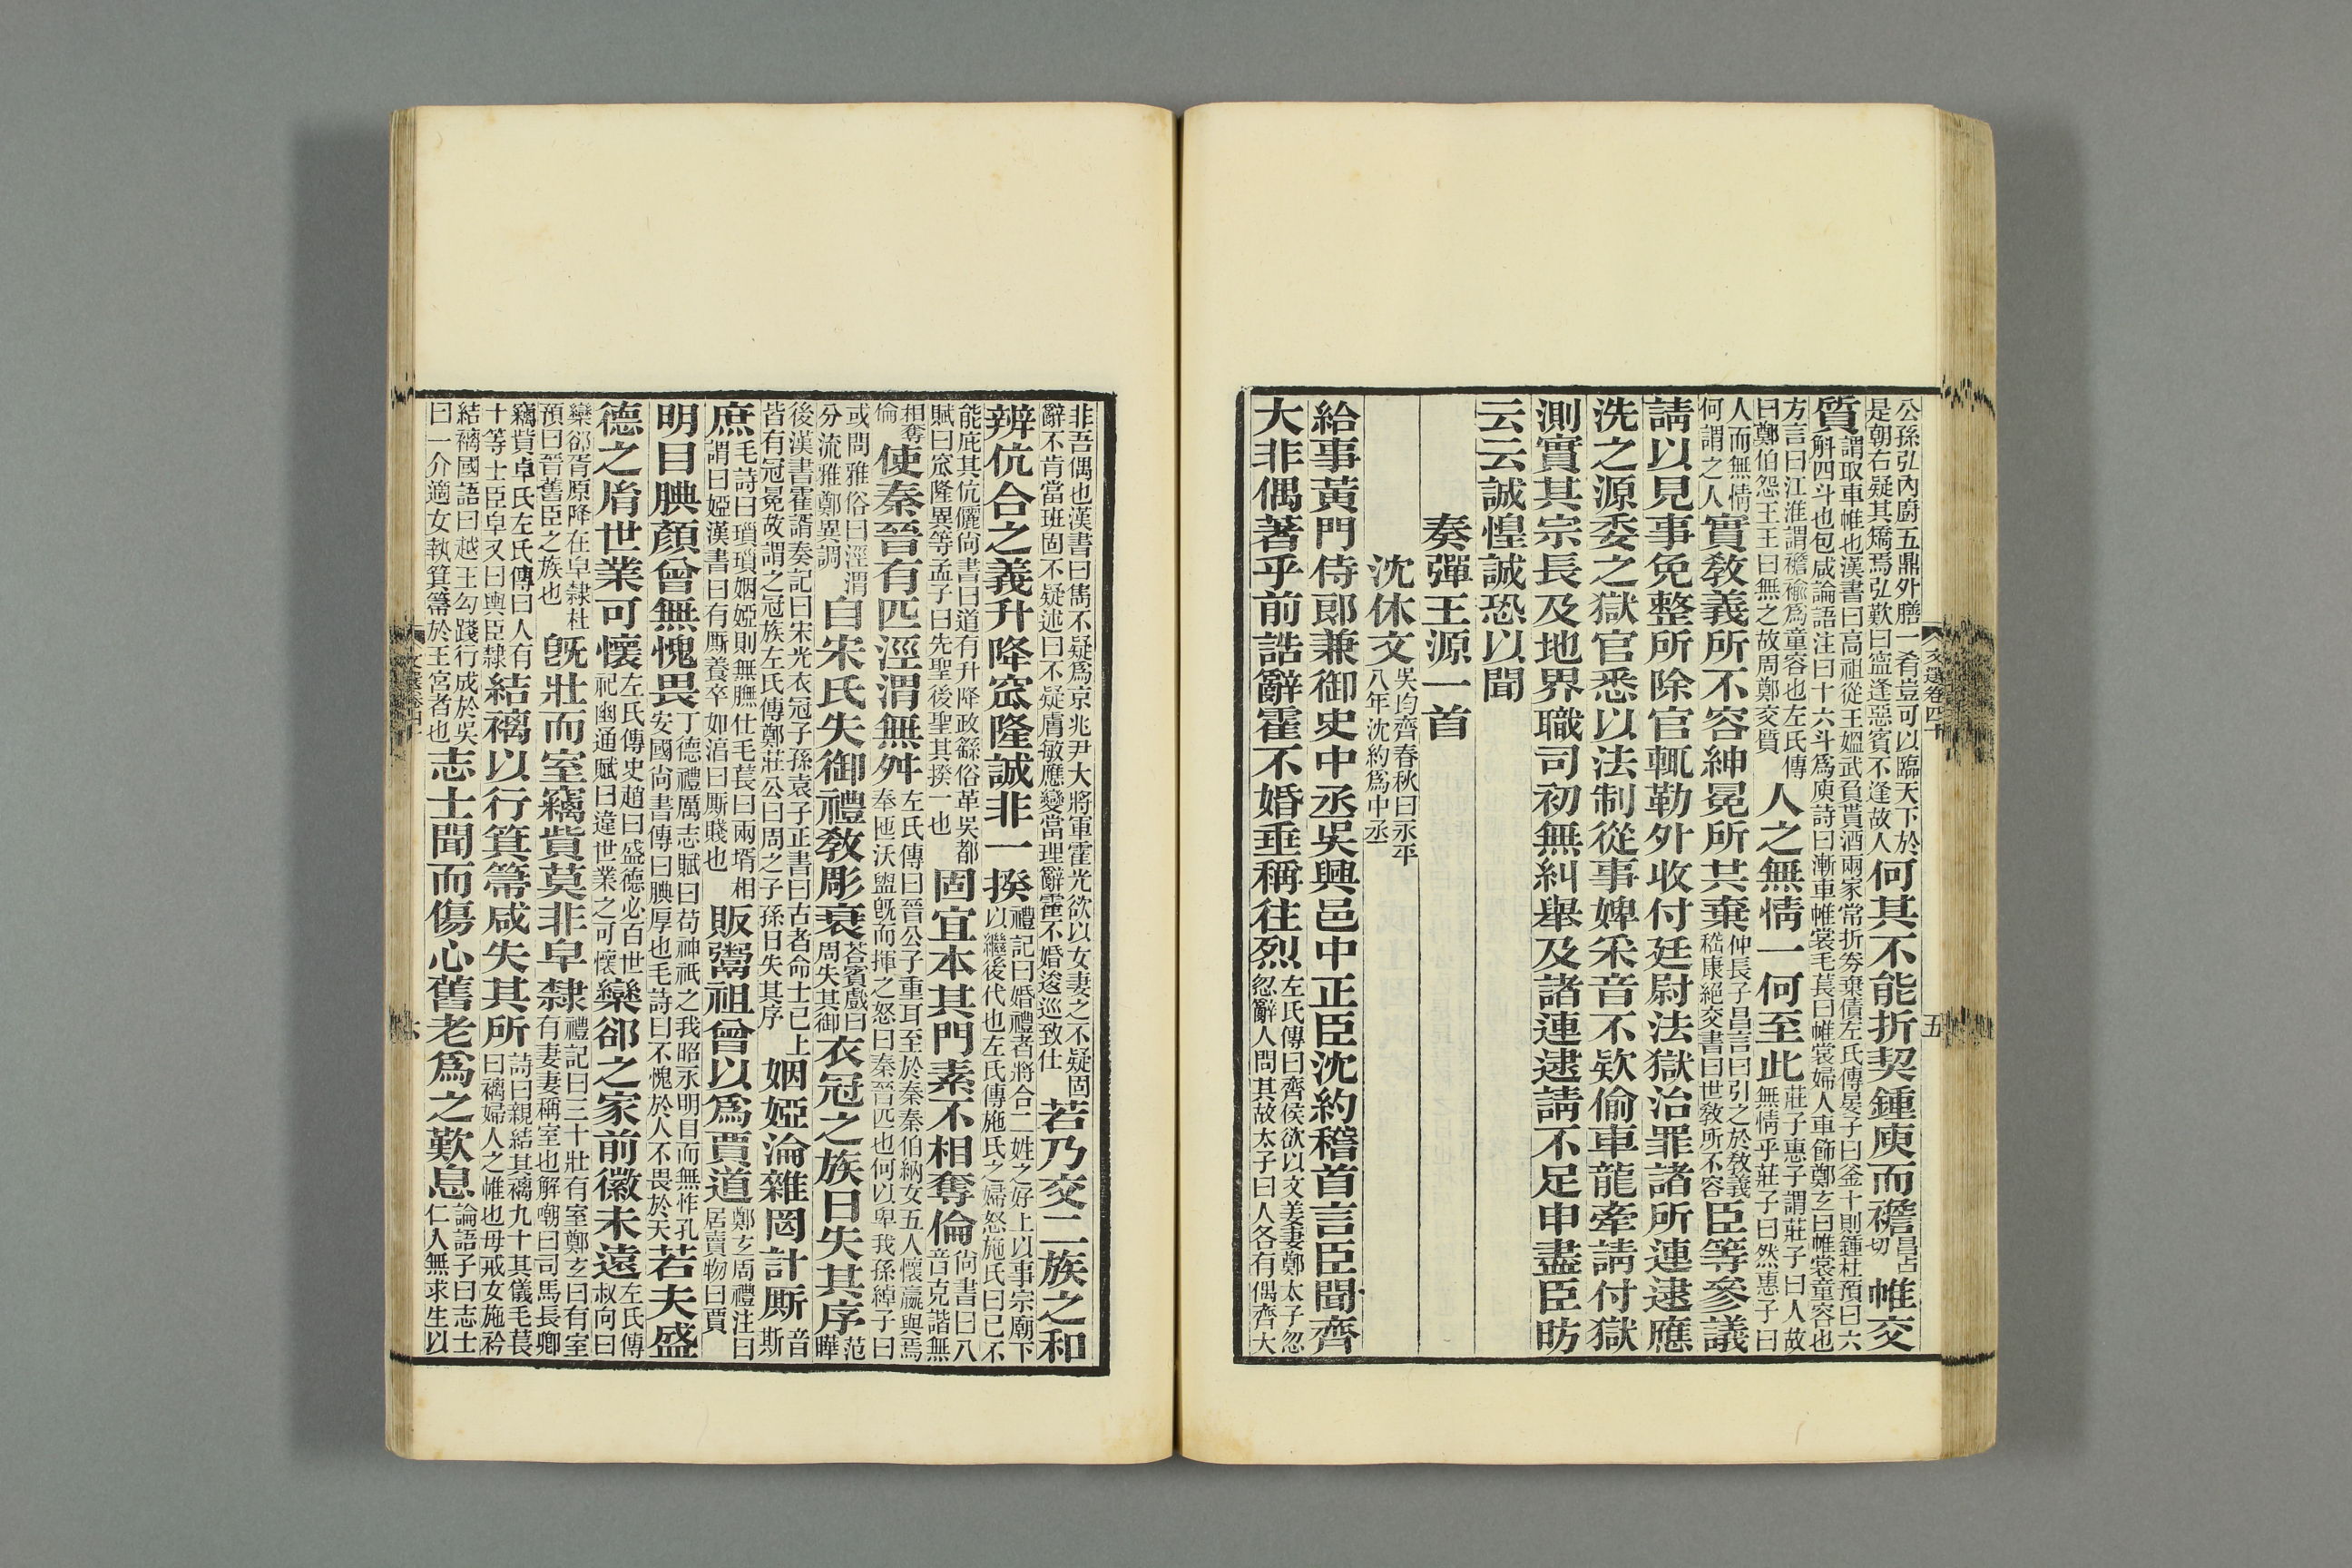 公孫弘內廚五鼎外膳一肴豈可以臨天下於
是朝右疑其矯焉弘歎曰寧逢惡賓不逢故人何其不能折契鍾庾而襜昌占切帷交
質謂取車帷也漢書曰高祖從王媼武負貰酒兩家常折券棄債左氏傳晏子曰釜十則鍾杜預曰六
斛四斗也包咸論語注曰十六斗爲庾詩曰漸車帷裳毛萇曰帷裳婦人車飾鄭玄曰帷裳童容也
方言曰江淮謂襜褕爲童容也左氏傳
曰鄭伯怨王王曰無之故周鄭交質人之無情一何至此莊子惠子謂莊子曰人故
無情乎莊子曰然惠子曰
人而無情
何謂之人實敎義所不容紳冕所共棄仲長子昌言曰引之於敎義
嵇康絕交書曰世敎所不容臣等參議
請以見事免整所除官輒勒外收付廷尉法獄治罪諸所連逮應
洗之源委之獄官悉以法制從事婢采音不欵偷車龍牽請付獄
測實其宗長及地界職司初無糾舉及諸連逮請不足申盡臣昉
云云誠惶誠恐以聞
奏彈王源一首
沈休文吳均齊春秋曰永平
八年沈約爲中丞
給事黃門侍郎兼御史中丞吳興邑中正臣沈約稽首言臣聞齊
大非偶著乎前誥辭霍不婚垂稱往烈左氏傳曰齊侯欲以文姜妻鄭太子忽
忽辭人問其故太子曰人各有偶齊大
文選卷四十
五
非吾偶也漢書曰雋不疑爲京兆尹大將軍霍光欲以女妻之不疑固
辭不肯當班固不疑述曰不疑膚敏應變當理辭霍不婚逡巡致仕若乃交二族之和
辨伉合之義升降窊隆誠非一揆禮記曰婚禮者將合二姓之好上以事宗廟下
以繼後代也左氏傳施氏之婦怒施氏曰已不
能庇其伉儷尙書曰道有升降政繇俗革吳都
賦曰窊隆異等孟子曰先聖後聖其揆一也固宜本其門素不相奪倫尙書曰八
音克諧無
相奪
倫使秦晉有匹涇渭無舛左氏傳曰晉公子重耳至於秦秦伯納女五人懷嬴與焉
奉匜沃盥旣而揮之怒曰秦晉匹也何以卑我孫綽子曰
或問雅俗曰涇渭
分流雅鄭異調自宋氏失御禮敎彫衰荅賓戲曰
周失其御衣冠之族日失其序范
曄
後漢書霍諝奏記曰宋光衣冠子孫袁子正書曰古者命士已上
皆有冠冕故謂之冠族左氏傳鄭莊公曰周之子孫日失其序姻婭淪雜罔計厮音
斯
庶毛詩曰瑣瑣姻婭則無膴仕毛萇曰兩壻相
謂曰婭漢書曰有厮養卒如湻曰厮賤也販鬻祖曾以爲賈道鄭玄周禮注曰
居賣物曰賈
明目腆顏曾無愧畏丁德禮厲志賦曰苟神祇之我昭永明目而無怍孔
安國尙書傳曰腆厚也毛詩曰不愧於人不畏於天若夫盛
德之胄世業可懷左氏傳史趙曰盛德必百世
祀幽通賦曰違世業之可懷欒郤之家前徽未遠左氏傳
叔向曰
欒郤胥原降在皁隸杜
預曰晉舊臣之族也旣壯而室竊貲莫非皁隸禮記曰三十壯有室鄭玄曰有室
有妻妻稱室也解嘲曰司馬長卿
竊貲卓氏左氏傳曰人有
十等士臣皁又曰輿臣隸結褵以行箕箒咸失其所詩曰親結其褵九十其儀毛萇
曰褵婦人之帷也母戒女施衿
結褵國語曰越王勾踐行成於吳
曰一介適女執箕箒於王宮者也志士聞而傷心舊老爲之歎息論語子曰志士
仁人無求生以